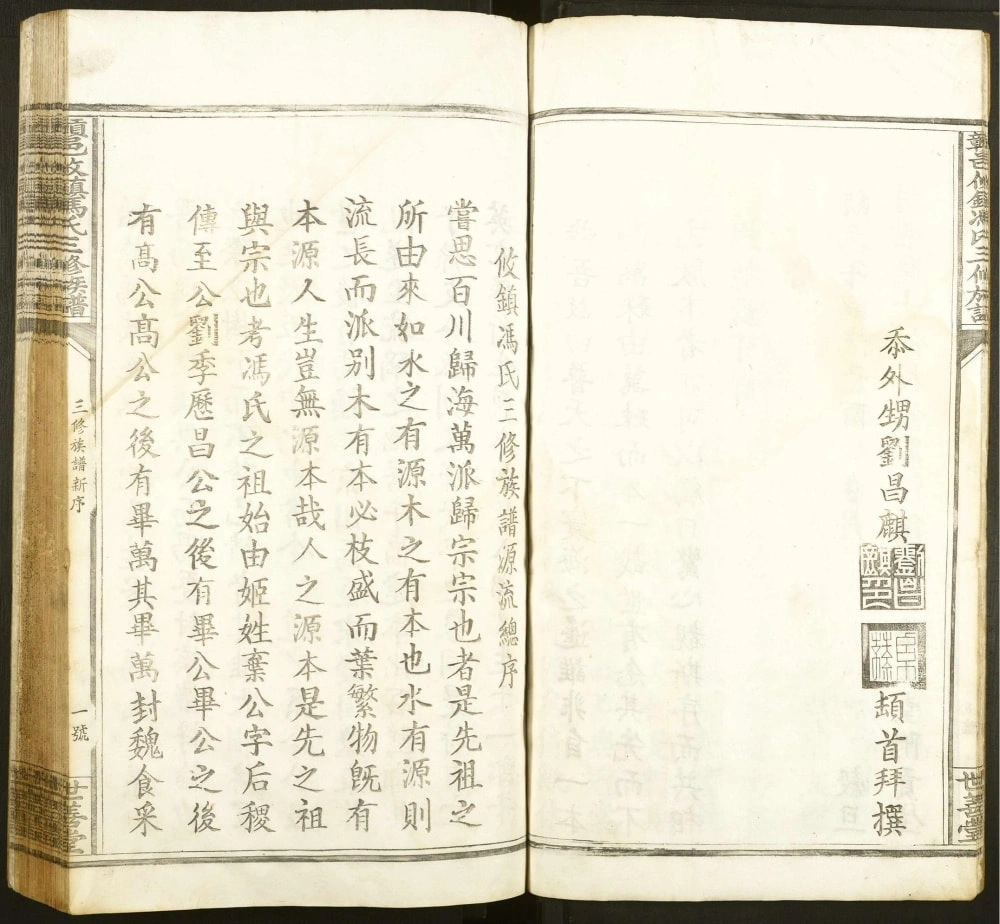 忝外甥劉昌麒
頓首拜撰
世善堂
攸鎮馮氏三修族譜源流總序
嘗思百川歸海萬派歸宗宗也者是先祖之
所由來如水之有源木之有本也水有源則
流長而派别木有本必枝盛而葉繁物既有
本源人生豈無源本哉人之源本是先之祖
與宗也考馮氏之祖始由姬姓棄公字后稷
傳至公劉季歷昌公之後有畢公畢公之後
有髙公髙公之後有畢萬其畢萬封魏食采
攸鎮馮氏三修族譜
三修族譜新序
一號
世善堂